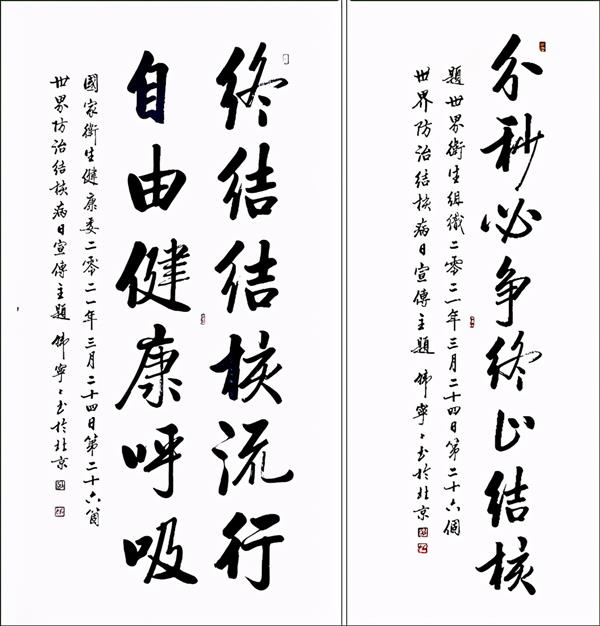 分秒必争终止结核
題世界衛生組織二零二一年三月二十四日第二十六個
世界防治结核病日宣傳主題 韩寧〻书於北京
终结结核流行
自由健康呼吸
國家衛生健康委二零二一年三月二十四日第二十六箇
世界防治结核病日宣傳主題 韩寧〻书於北京